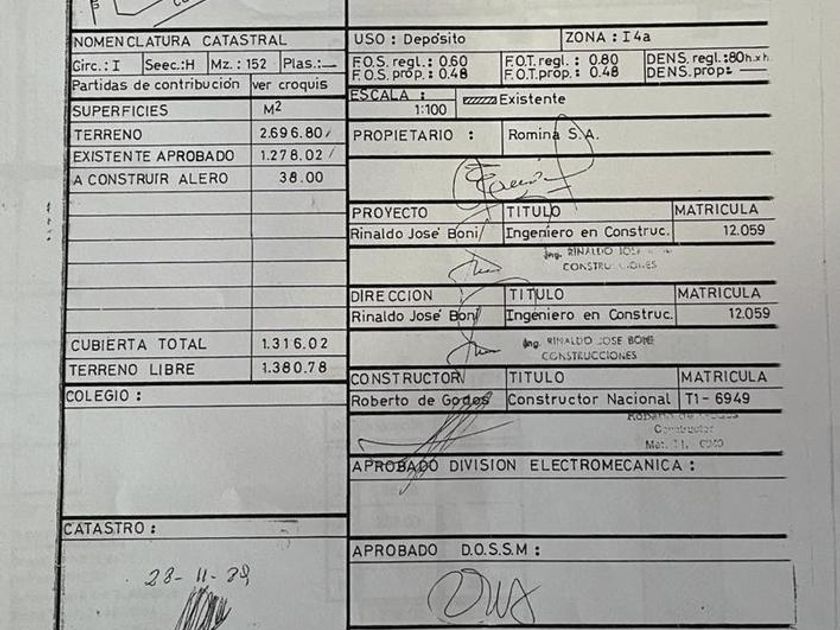 NOMENCLATURA CATASTRAL
Circ.: I Seec.:H Mz.: 152 Plas.:—
Partidas de contribución ver croquis
SUPERFICIES M2
TERRENO 2.696.80
EXISTENTE APROBADO 1.278.02
A CONSTRUIR ALERO 38.00
CUBIERTA TOTAL 1.316.02
TERRENO LIBRE 1.380.78
COLEGIO :
CATASTRO :
USO : Depósito ZONA : I4a
F.O.S. regl.: 0.60 F.O.T. regl.: 0.80 DENS. regl.:80h.x h.
F.O.S. prop.: 0.48 F.O.T. prop.: 0.48 DENS. prop: —
ESCALA : 1:100 Existente
PROPIETARIO : Romina S.A.
PROYECTO TITULO MATRICULA
Rinaldo José Boni Ingeniero en Construc. 12.059
Ing. RINALDO JOSE
CONSTRUCCIONES
DIRECCION TITULO MATRICULA
Rinaldo José Boni Ingeniero en Construc. 12.059
Ing. RINALDO JOSE BONI
CONSTRUCCIONES
CONSTRUCTOR TITULO MATRICULA
Roberto de Godos Constructor Nacional T1- 6949
Constructor
APROBADO DIVISION ELECTROMECANICA :
APROBADO D.O.S.S.M :